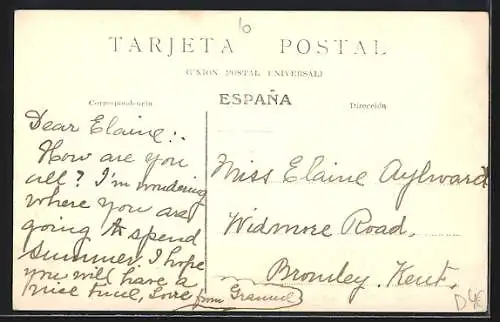 6
TARJETA POSTAL
(UNION POSTAL UNIVERSAL)
ESPAÑA
Correspondencia
Dirección
Dear Elaine:.
How are you
all? I'm wondering
where you are
going to spend
summer. I hope
you will have a
nice time, Love
from Grannie
Miss Elaine Aylward
Widmore Road.
Bromley. Kent.
D4E